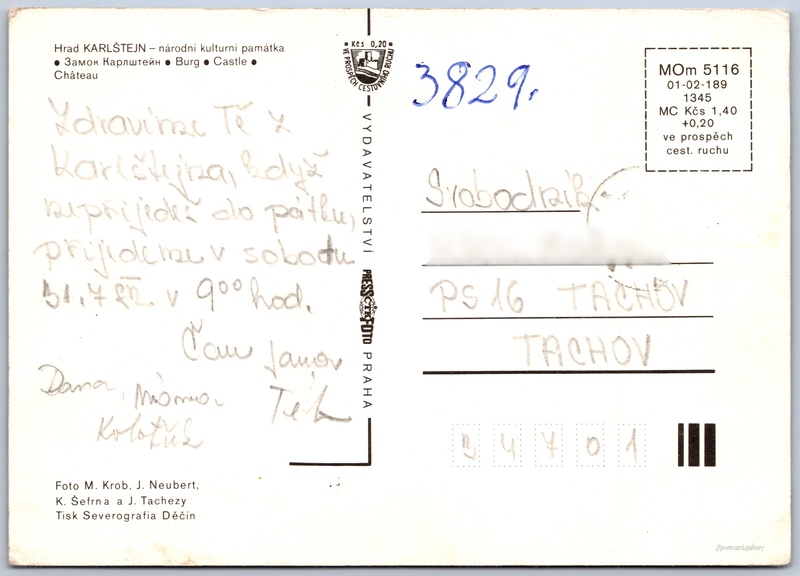 Hrad KARLŠTEJN – národní kulturní památka
● Замок Карлштейн ● Burg ● Castle ●
Château
Kčs 0,20
VE PROSPĚCH CESTOVNÍHO RUCHU
3829.
MOm 5116
01-02-189
1345
MC Kčs 1,40
+0,20
ve prospěch
cest. ruchu
Zdravíme Tě z
Karlštejna, když
nepřijedeš do pátku,
přijdeme v sobotu
31.7 v 9⁰⁰ hod.
Dana,
VYDAVATELSTVÍ PRESSFOTO PRAHA
ČTK
Svobodník
PS 16 TACHOV
TACHOV
34701
Foto M. Krob, J. Neubert,
K. Šefrna a J. Tachezy
Tisk Severografia Děčín